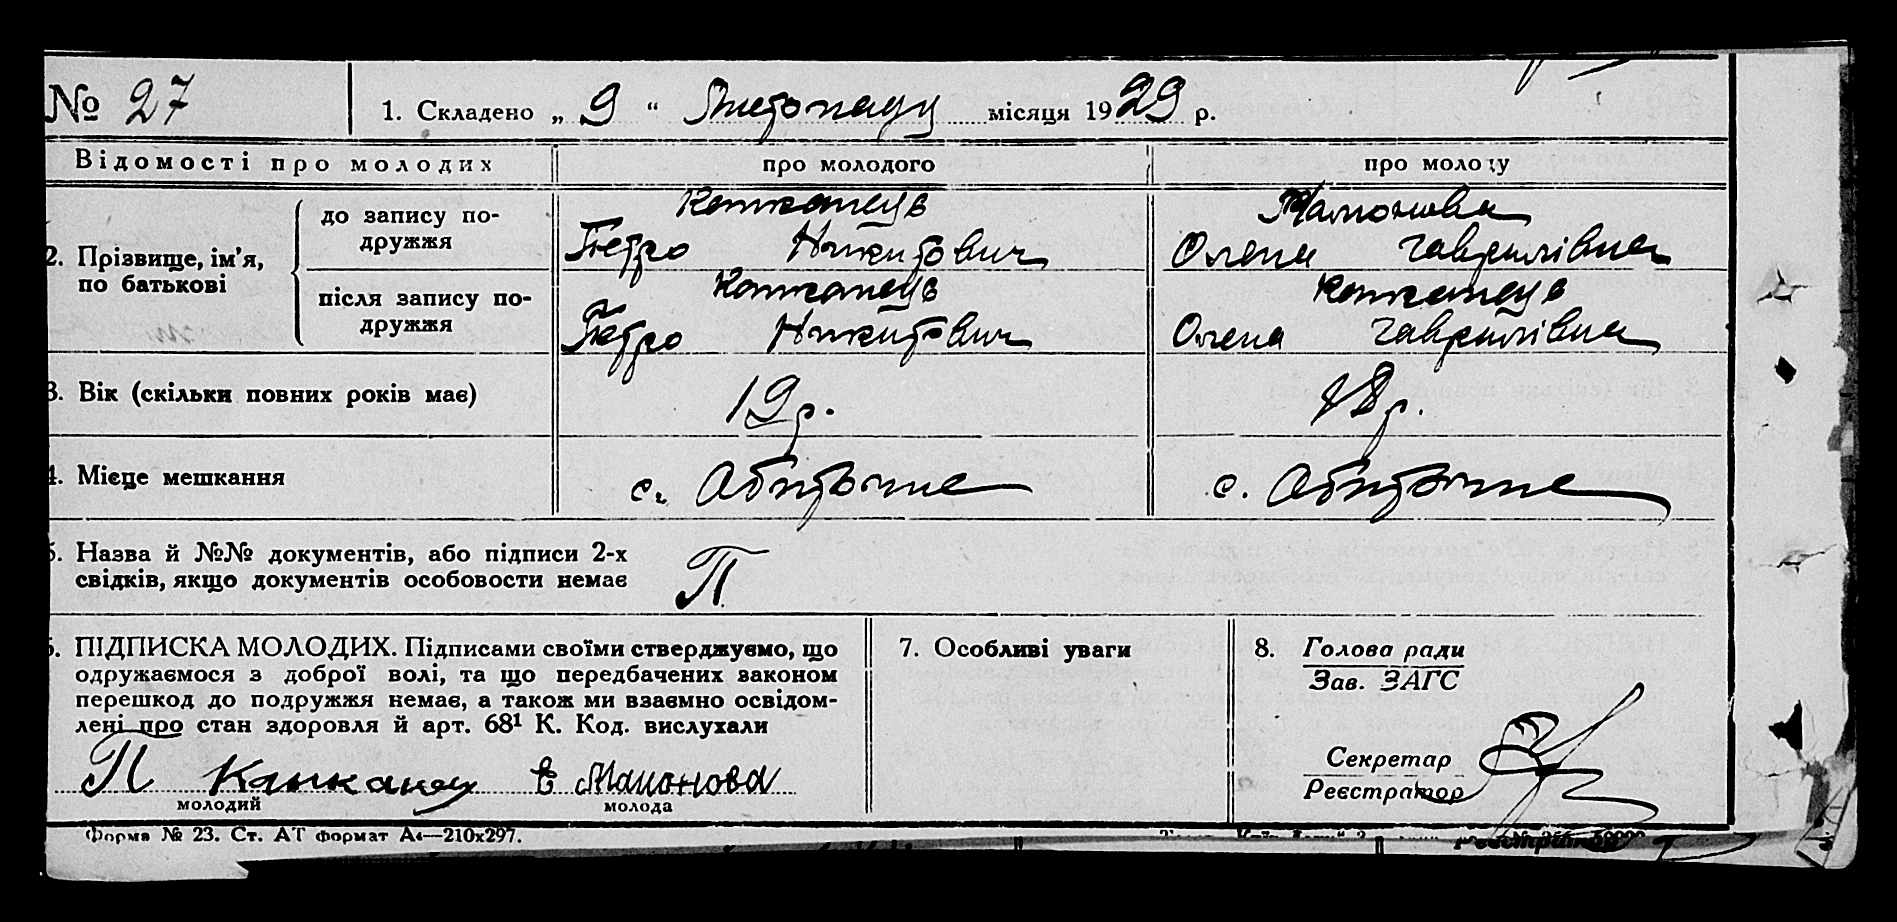 № 27
1. Складено „ 9 “ Листопаду місяця 1929 р.
Відомості про молодих
про молодого
про молоду
2. Прізвище, ім’я,
по батькові
до запису по-
дружжя
Канканець
Петро Никитович
Мамонова
Олена Гаврилівна
після запису по-
дружжя
Канканець
Петро Никитович
Канканець
Олена Гаврилівна
3. Вік (скільки повних років має)
19 р.
18 р.
4. Місце мешкання
с. Обиточне
с. Обиточне
5. Назва й №№ документів, або підписи 2-х
свідків, якщо документів особовости немає
П
6. ПІДПИСКА МОЛОДИХ. Підписами своїми стверджуємо, що
одружаємося з доброї волі, та що передбачених законом
перешкод до подружжя немає, а також ми взаємно освідом-
лені про стан здоровля й арт. 68¹ К. Код. вислухали
П Канканец Е Мамонова
молодий
молода
7. Особливі уваги
8. Голова ради
Зав. ЗАГС
Секретар
Реєстратор
Форма № 23. Ст. АТ формат А4—210х297.